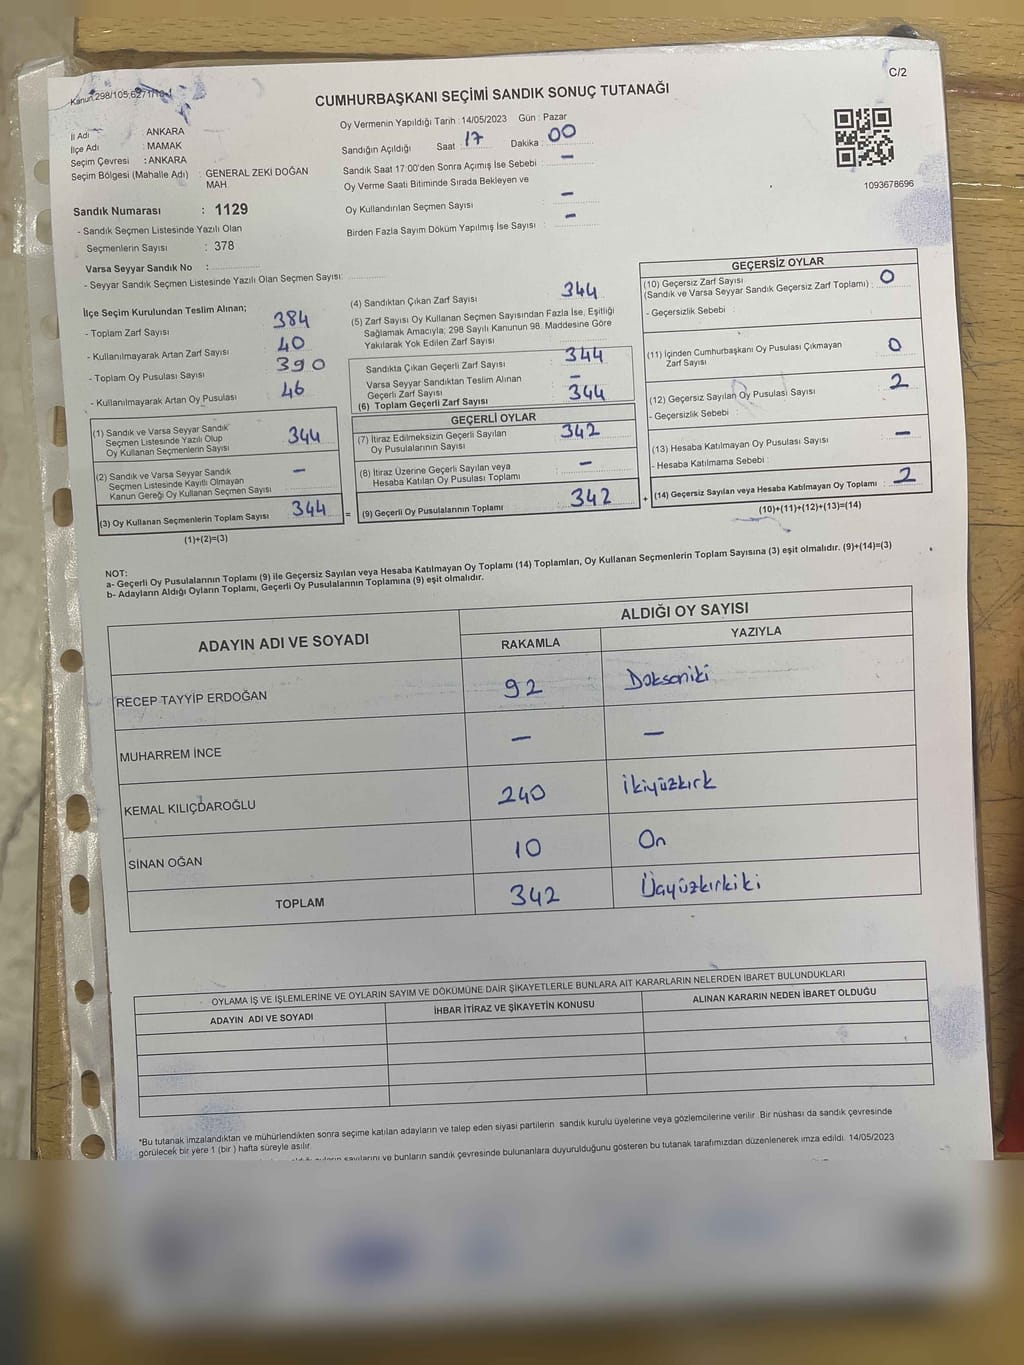 C/2
Kanun 298/105,6271/18-4
CUMHURBAŞKANI SEÇİMİ SANDIK SONUÇ TUTANAĞI
İl Adı : ANKARA
İlçe Adı : MAMAK
Seçim Çevresi : ANKARA
Seçim Bölgesi (Mahalle Adı) : GENERAL ZEKİ DOĞAN
MAH
Sandık Numarası : 1129
- Sandık Seçmen Listesinde Yazılı Olan
Seçmenlerin Sayısı : 378
Varsa Seyyar Sandık No :
- Seyyar Sandık Seçmen Listesinde Yazılı Olan Seçmen Sayısı:
Oy Vermenin Yapıldığı Tarih : 14/05/2023 Gün : Pazar
Sandığın Açıldığı Saat : 17 Dakika : 00
Sandık Saat 17:00'den Sonra Açımış İse Sebebi : –
Oy Verme Saati Bitiminde Sırada Bekleyen ve
Oy Kullandırılan Seçmen Sayısı : –
Birden Fazla Sayım Döküm Yapılmış İse Sayısı : –
1093678696
İlçe Seçim Kurulundan Teslim Alınan;
- Toplam Zarf Sayısı 384
- Kullanılmayarak Artan Zarf Sayısı 40
- Toplam Oy Pusulası Sayısı 390
- Kullanılmayarak Artan Oy Pusulası 46
(1) Sandık ve Varsa Seyyar Sandık
Seçmen Listesinde Yazılı Olup
Oy Kullanan Seçmenlerin Sayısı 344
(2) Sandık ve Varsa Seyyar Sandık
Seçmen Listesinde Kayıtlı Olmayan
Kanun Gereği Oy Kullanan Seçmen Sayısı –
(3) Oy Kullanan Seçmenlerin Toplam Sayısı 344
(1)+(2)=(3)
(4) Sandıktan Çıkan Zarf Sayısı 344
(5) Zarf Sayısı Oy Kullanan Seçmen Sayısından Fazla İse, Eşitliği
Sağlamak Amacıyla; 298 Sayılı Kanunun 98. Maddesine Göre
Yakılarak Yok Edilen Zarf Sayısı
Sandıkta Çıkan Geçerli Zarf Sayısı 344
Varsa Seyyar Sandıktan Teslim Alınan
Geçerli Zarf Sayısı –
(6) Toplam Geçerli Zarf Sayısı 344
GEÇERLİ OYLAR
(7) İtiraz Edilmeksizin Geçerli Sayılan
Oy Pusulalarının Sayısı 342
(8) İtiraz Üzerine Geçerli Sayılan veya
Hesaba Katılan Oy Pusulası Toplamı –
= (9) Geçerli Oy Pusulalarının Toplamı 342
GEÇERSİZ OYLAR
(10) Geçersiz Zarf Sayısı
(Sandık ve Varsa Seyyar Sandık Geçersiz Zarf Toplamı) : 0
- Geçersizlik Sebebi :
(11) İçinden Cumhurbaşkanı Oy Pusulası Çıkmayan
Zarf Sayısı 0
(12) Geçersiz Sayılan Oy Pusulası Sayısı 2
- Geçersizlik Sebebi :
(13) Hesaba Katılmayan Oy Pusulası Sayısı –
- Hesaba Katılmama Sebebi :
+ (14) Geçersiz Sayılan veya Hesaba Katılmayan Oy Toplamı : 2
(10)+(11)+(12)+(13)=(14)
NOT:
a- Geçerli Oy Pusulalarının Toplamı (9) ile Geçersiz Sayılan veya Hesaba Katılmayan Oy Toplamı (14) Toplamları, Oy Kullanan Seçmenlerin Toplam Sayısına (3) eşit olmalıdır. (9)+(14)=(3)
b- Adayların Aldığı Oyların Toplamı, Geçerli Oy Pusulalarının Toplamına (9) eşit olmalıdır.
ADAYIN ADI VE SOYADI
ALDIĞI OY SAYISI
RAKAMLA YAZIYLA
RECEP TAYYİP ERDOĞAN 92 Doksaniki
MUHARREM İNCE – –
KEMAL KILIÇDAROĞLU 240 İkiyüzkırk
SİNAN OĞAN 10 On
TOPLAM 342 Üçyüzkırkiki
OYLAMA İŞ VE İŞLEMLERİNE VE OYLARIN SAYIM VE DÖKÜMÜNE DAİR ŞİKAYETLERLE BUNLARA AİT KARARLARIN NELERDEN İBARET BULUNDUKLARI
ADAYIN ADI VE SOYADI İHBAR İTİRAZ VE ŞİKAYETİN KONUSU ALINAN KARARIN NEDEN İBARET OLDUĞU
*Bu tutanak imzalandıktan ve mühürlendikten sonra seçime katılan adayların ve talep eden siyasi partilerin sandık kurulu üyelerine veya gözlemcilerine verilir. Bir nüshası da sandık çevresinde
görülecek bir yere 1 (bir) hafta süreyle asılır.
sayılarını ve bunların sandık çevresinde bulunanlara duyurulduğunu gösteren bu tutanak tarafımızdan düzenlenerek imza edildi. 14/05/2023